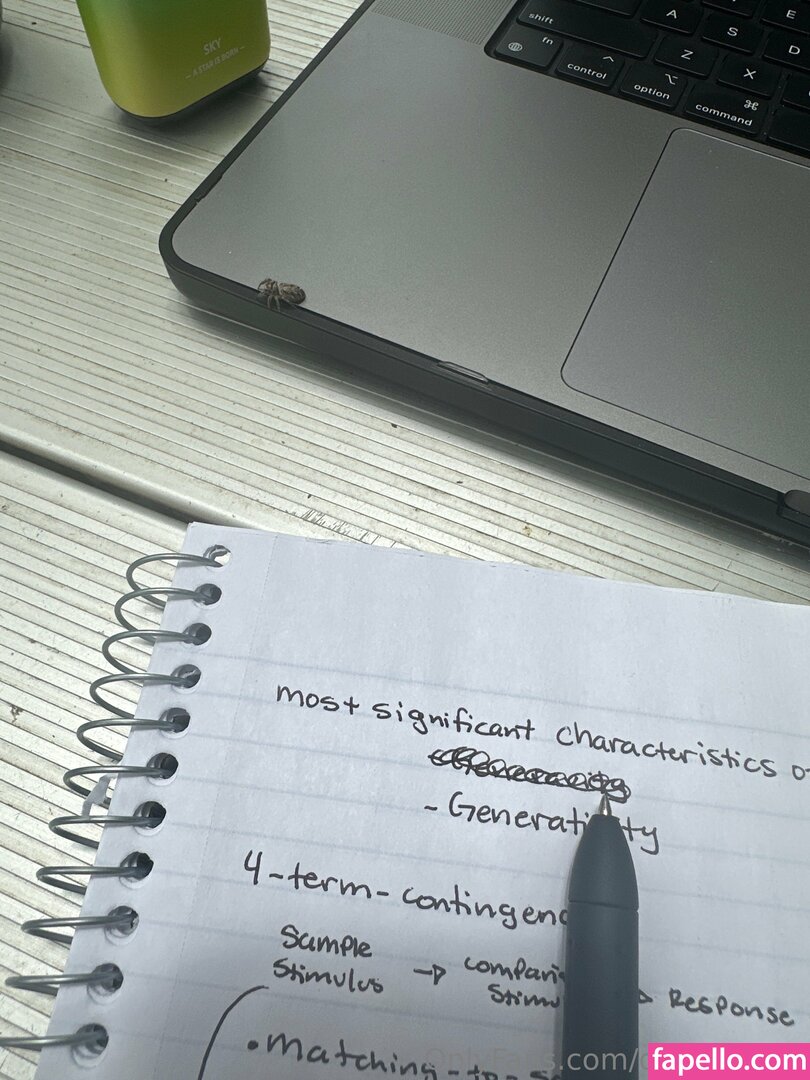 SKY
— A STAR IS BORN —
shift
A
S
D
E
fn
control
option
command
Z
X
most significant characteristics
- Generati ty
4-term-contingenc
Sample
Stimulus → compari
Stimu → Response
• matching-to-sa
OnlyFans.com/
fapello.com